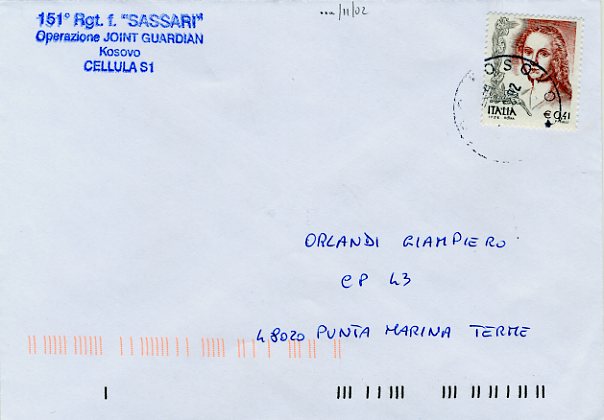 151° Rgt. f. "SASSARI"
Operazione JOINT GUARDIAN
Kosovo
CELLULA S1
/11/02
ITALIA
€ 0,41
ORLANDI GIAMPIERO
CP 43
48020 PUNTA MARINA TERME